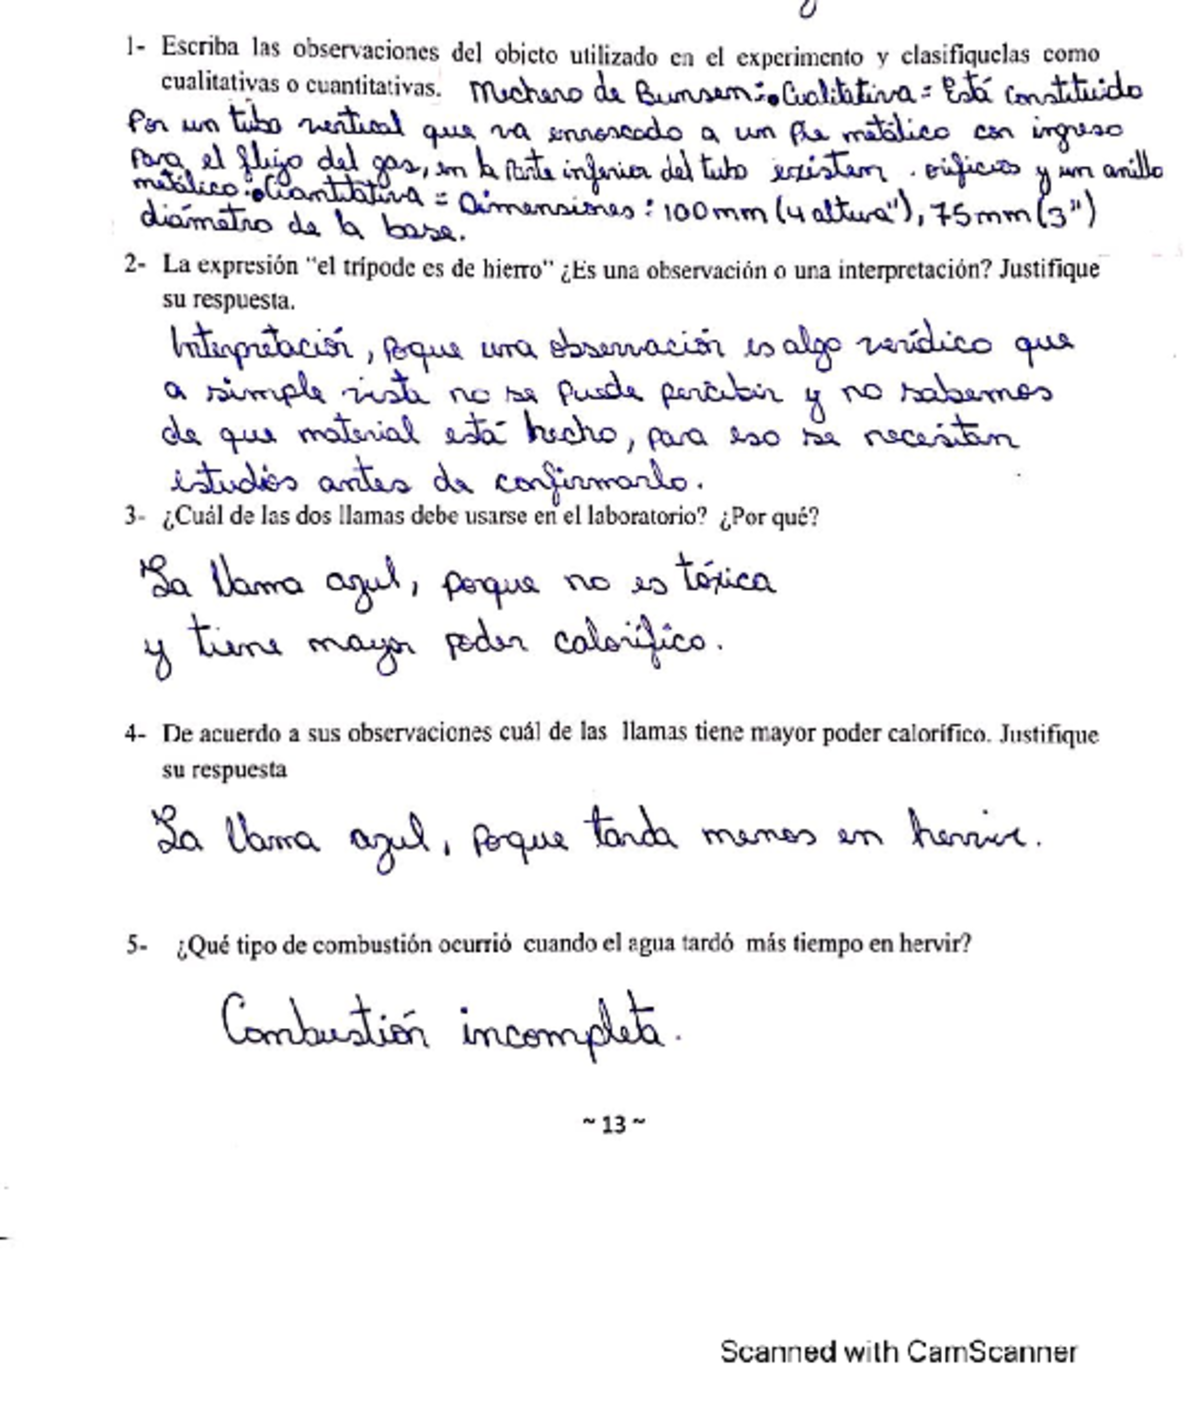 1- Escriba las observaciones del objeto utilizado en el experimento y clasifiquelas como
cualitativas o cuantitativas. Mechero de Bunsen: • Cualitativa = Está constituido
Por un tubo vertical que va enroscado a un pie metálico con ingreso
Para el flujo del gas, en la parte inferior del tubo existen . orificios y un anillo
metálico. • Cuantitativa = Dimensiones: 100mm (4 altura"), 75mm (3")
diámetro de la base.
2- La expresión "el trípode es de hierro" ¿Es una observación o una interpretación? Justifique
su respuesta.
Interpretación, poque una observación es algo verídico que
a simple vista no se puede percibir y no sabemos
de que material está hecho, para eso se necesitan
estudios antes de confirmarlo.
3- ¿Cuál de las dos llamas debe usarse en el laboratorio? ¿Por qué?
La llama azul, porque no es tóxica
y tiene mayor poder calorífico.
4- De acuerdo a sus observaciones cuál de las llamas tiene mayor poder calorífico. Justifique
su respuesta
La llama azul, porque tarda menos en hervir.
5- ¿Qué tipo de combustión ocurrió cuando el agua tardó más tiempo en hervir?
Combustión incompleta.
~ 13 ~
Scanned with CamScanner